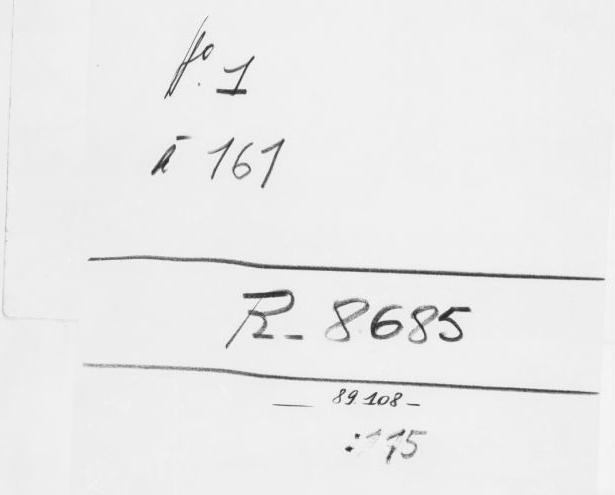 fo. 1
à 161
R_ 8685
— 89108 —
:115